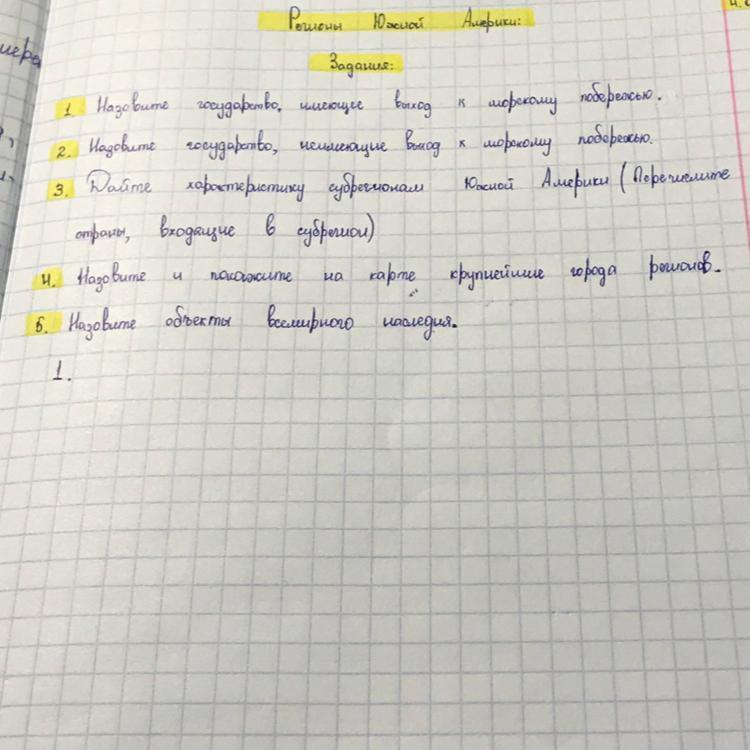 Регионы Южной Америки:
Задания:
1. Назовите государство, имеющие выход к морскому побережью.
2. Назовите государство, неимеющие выход к морскому побережью.
3. Дайте характеристику субрегионам Южной Америки (Перечислите
страны, входящие в субрегион)
4. Назовите и покажите на карте крупнейшие города регионов.
5. Назовите объекты всемирного наследия.
1.